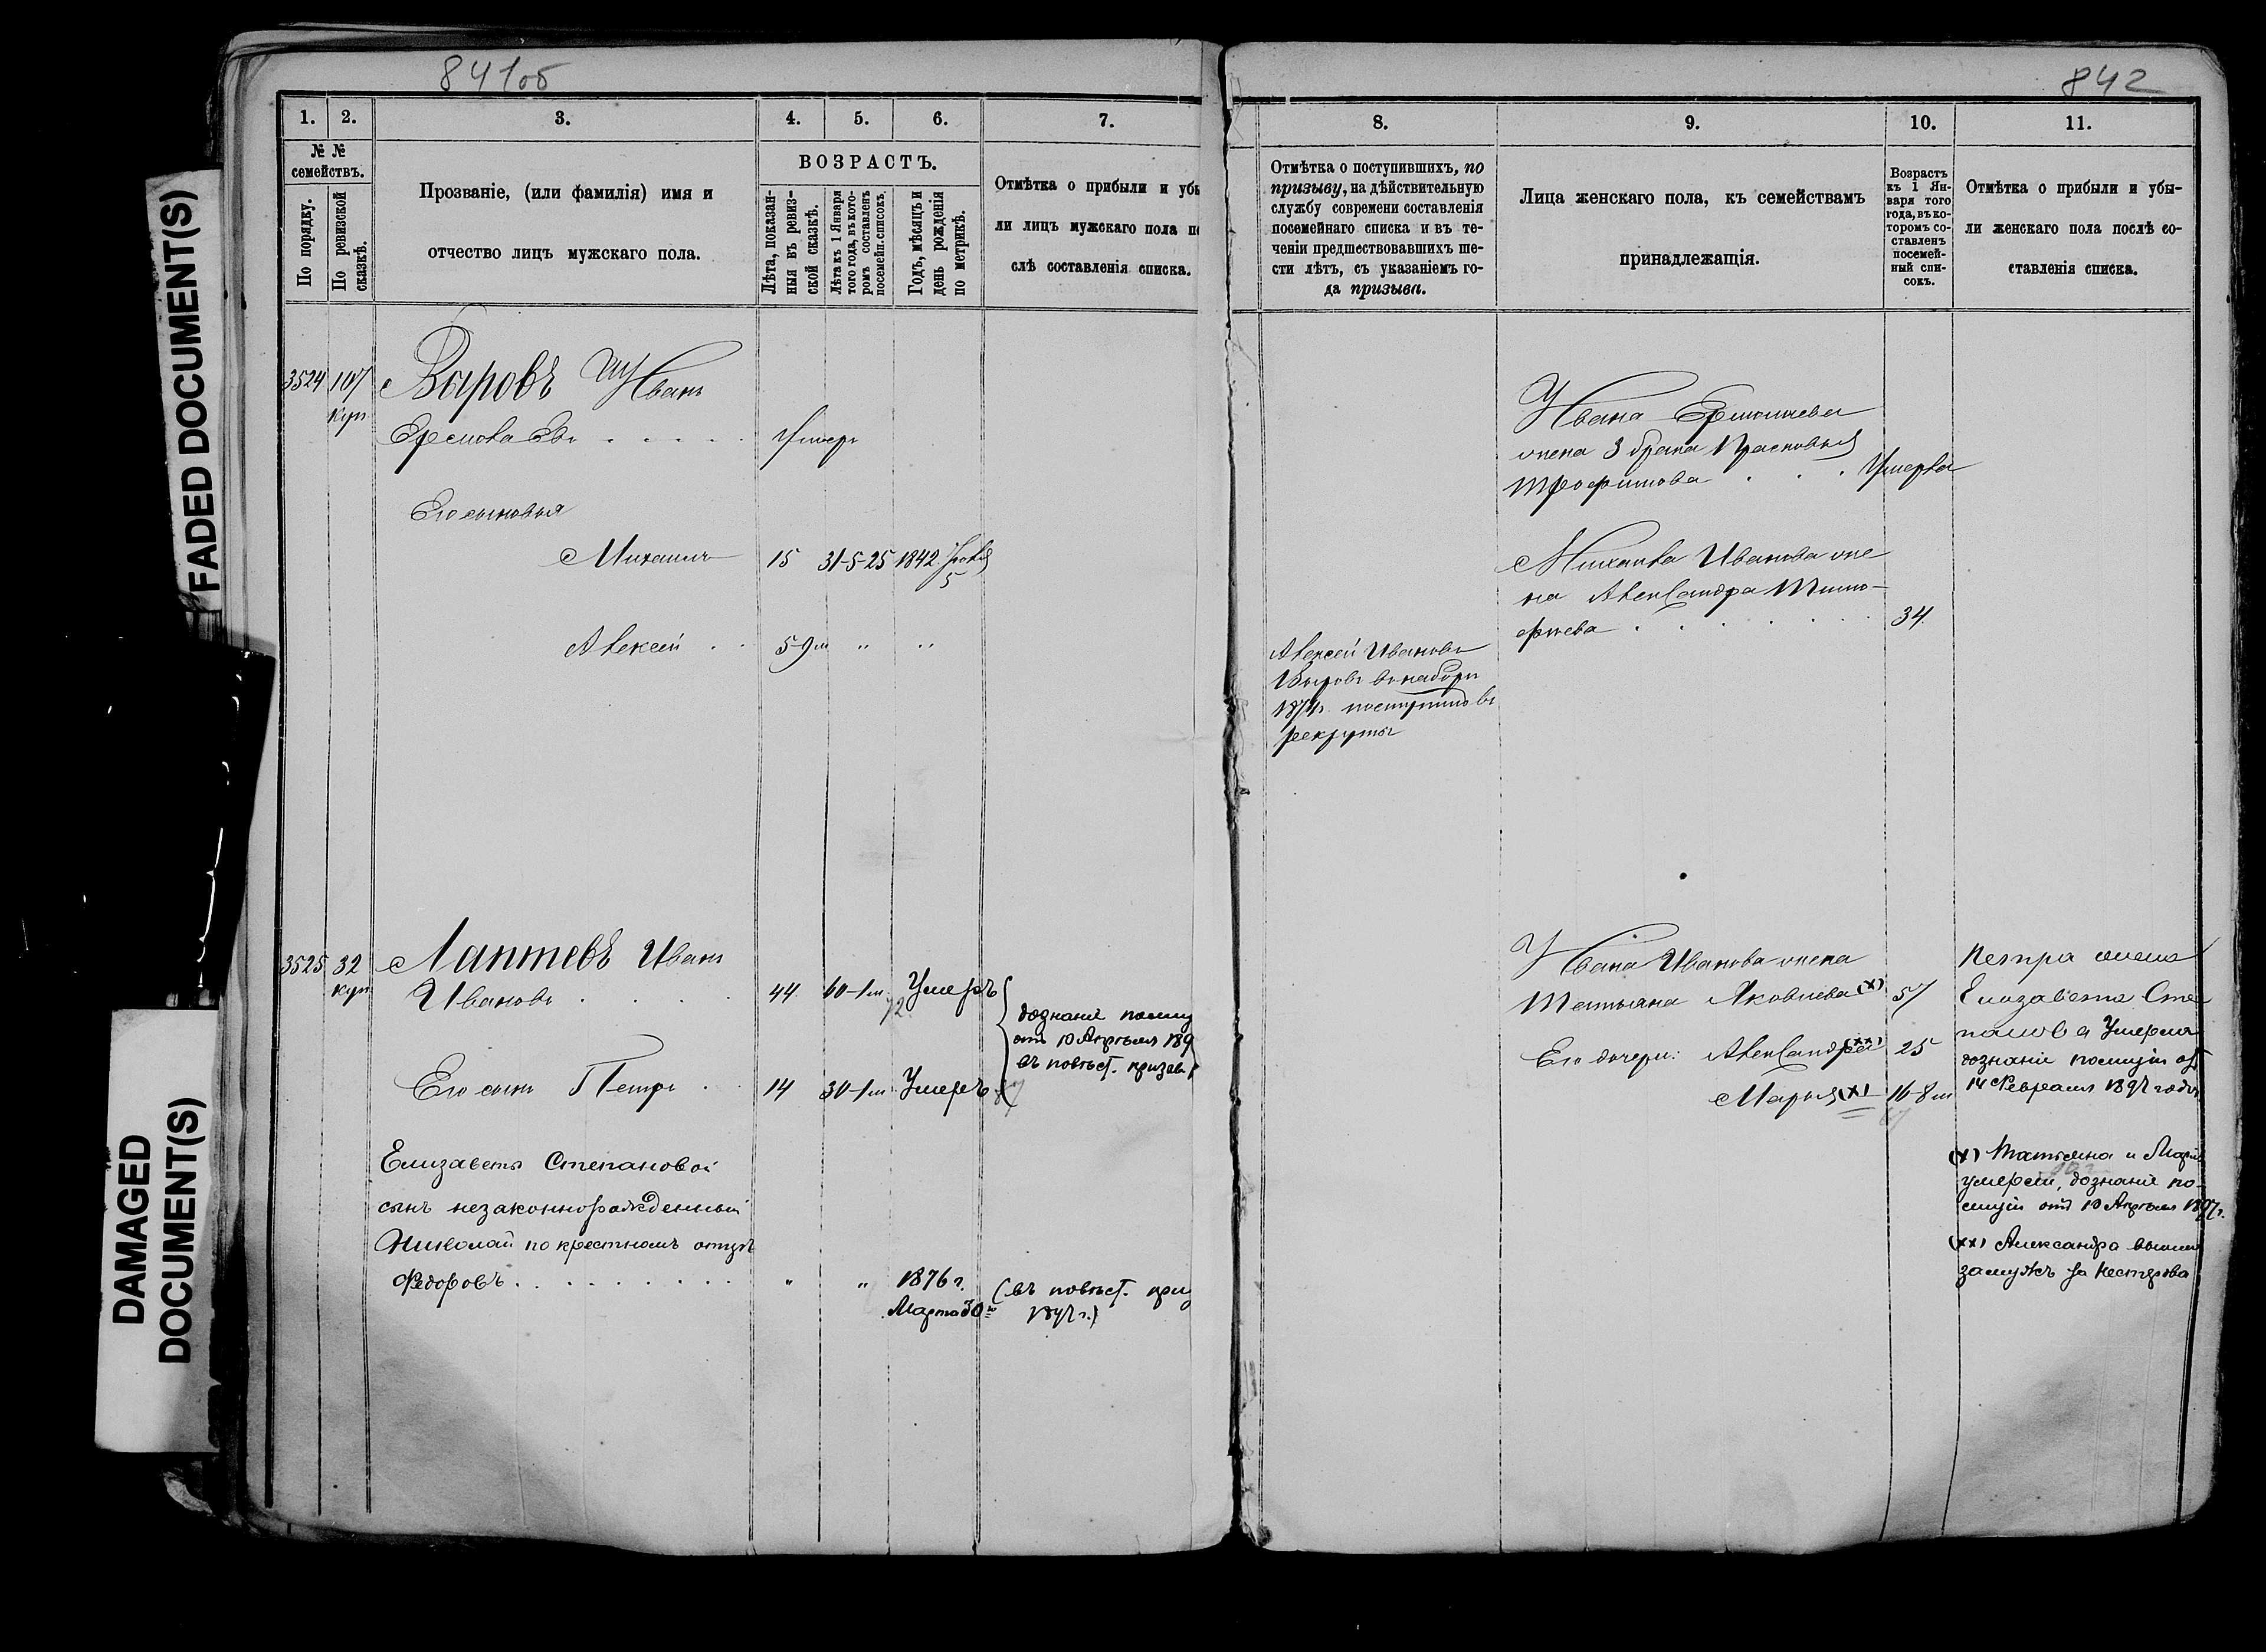 84 1об
842
FADED DOCUMENT(S)
DAMAGED
DOCUMENT(S)
1. 2. 3. 4. 5. 6. 7.
№ №
семействъ.
По порядку.
По ревизской
сказкѣ.
Прозваніе, (или фамилія) имя и
отчество лицъ мужскаго пола.
ВОЗРАСТЪ.
Лѣта, показан-
ныя въ ревиз-
ской сказкѣ.
Лѣта къ 1 Января
того года, въ кото-
ромъ составленъ
посемейн. списокъ.
Годъ, мѣсяцъ и
день рожденія
по метрикѣ.
Отмѣтка о прибыли и убы
ли лицъ мужскаго пола по
слѣ составленія списка.
3524 107 Выровъ Иванъ
куп
Умеръ
Его сыновья
Михаилъ 15 31-5-25 1842
5
Алексѣй . . 5-9м " "
3525 32 Лаптевъ Иванъ
куп Ивановъ . . . . 44 60-1м. Умеръ
72.
дознаніе полиц
отъ 10 Апрѣля 189
въ повѣст. призыв
Его сынъ Петръ . . 14 30-1м Умеръ
Елизаветы Степановой
сынъ незаконнорожденный
Николай по крестному отцу
Федоровъ . . . . . . . . . " " 1876 г. (въ повѣст. приз
Марта 30го 1897 г.)
8. 9. 10. 11.
Отмѣтка о поступившихъ, по
призыву, на дѣйствительную
службу современи составленія
посемейнаго списка и въ те-
ченіи предшествовавшихъ ше-
сти лѣтъ, съ указаніемъ го-
да призыва.
Лица женскаго пола, къ семействамъ
принадлежащія.
Возрастъ
къ 1 Ян-
варя того
года, въ ко-
торомъ со-
ставленъ
посемей-
ный спи-
сокъ.
Отмѣтка о прибыли и убы-
ли женскаго пола послѣ со-
ставленія списка.
Ивана Ермолаева
жена 3 брака Прасковья
Трофимова . . . Умерла
Михаила Иванова же
на Александра Тимо-
фѣева . . . . . . 34
Алексѣй Ивановъ
Выровъ въ наборъ
187 г. поступилъ въ
рекруты
Ивана Иванова жена
Татьяна Яковлева (х) 57
Его дочери: Александра (хх) 25
Марья (х) 16-8м
Петра жена
Елизавета Сте
панова Умерла
дознаніе полиціи от
14 Февраля 1897 года
(х) Татьяна и Марья
умерли, дознаніе по-
лиціи отъ 10 Апрѣля 1897 г.
(хх) Александра вышла
замужъ за Нестерова